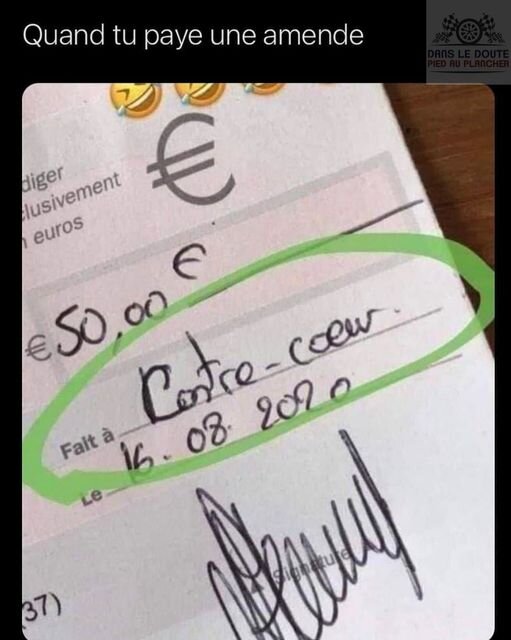 Quand tu paye une amende
DANS LE DOUTE
PIED AU PLANCHER
€
diger
lusivement
euros
€ 50,00 €
Fait à Contre-coeur.
Le 16.08.2020
Signature
37)